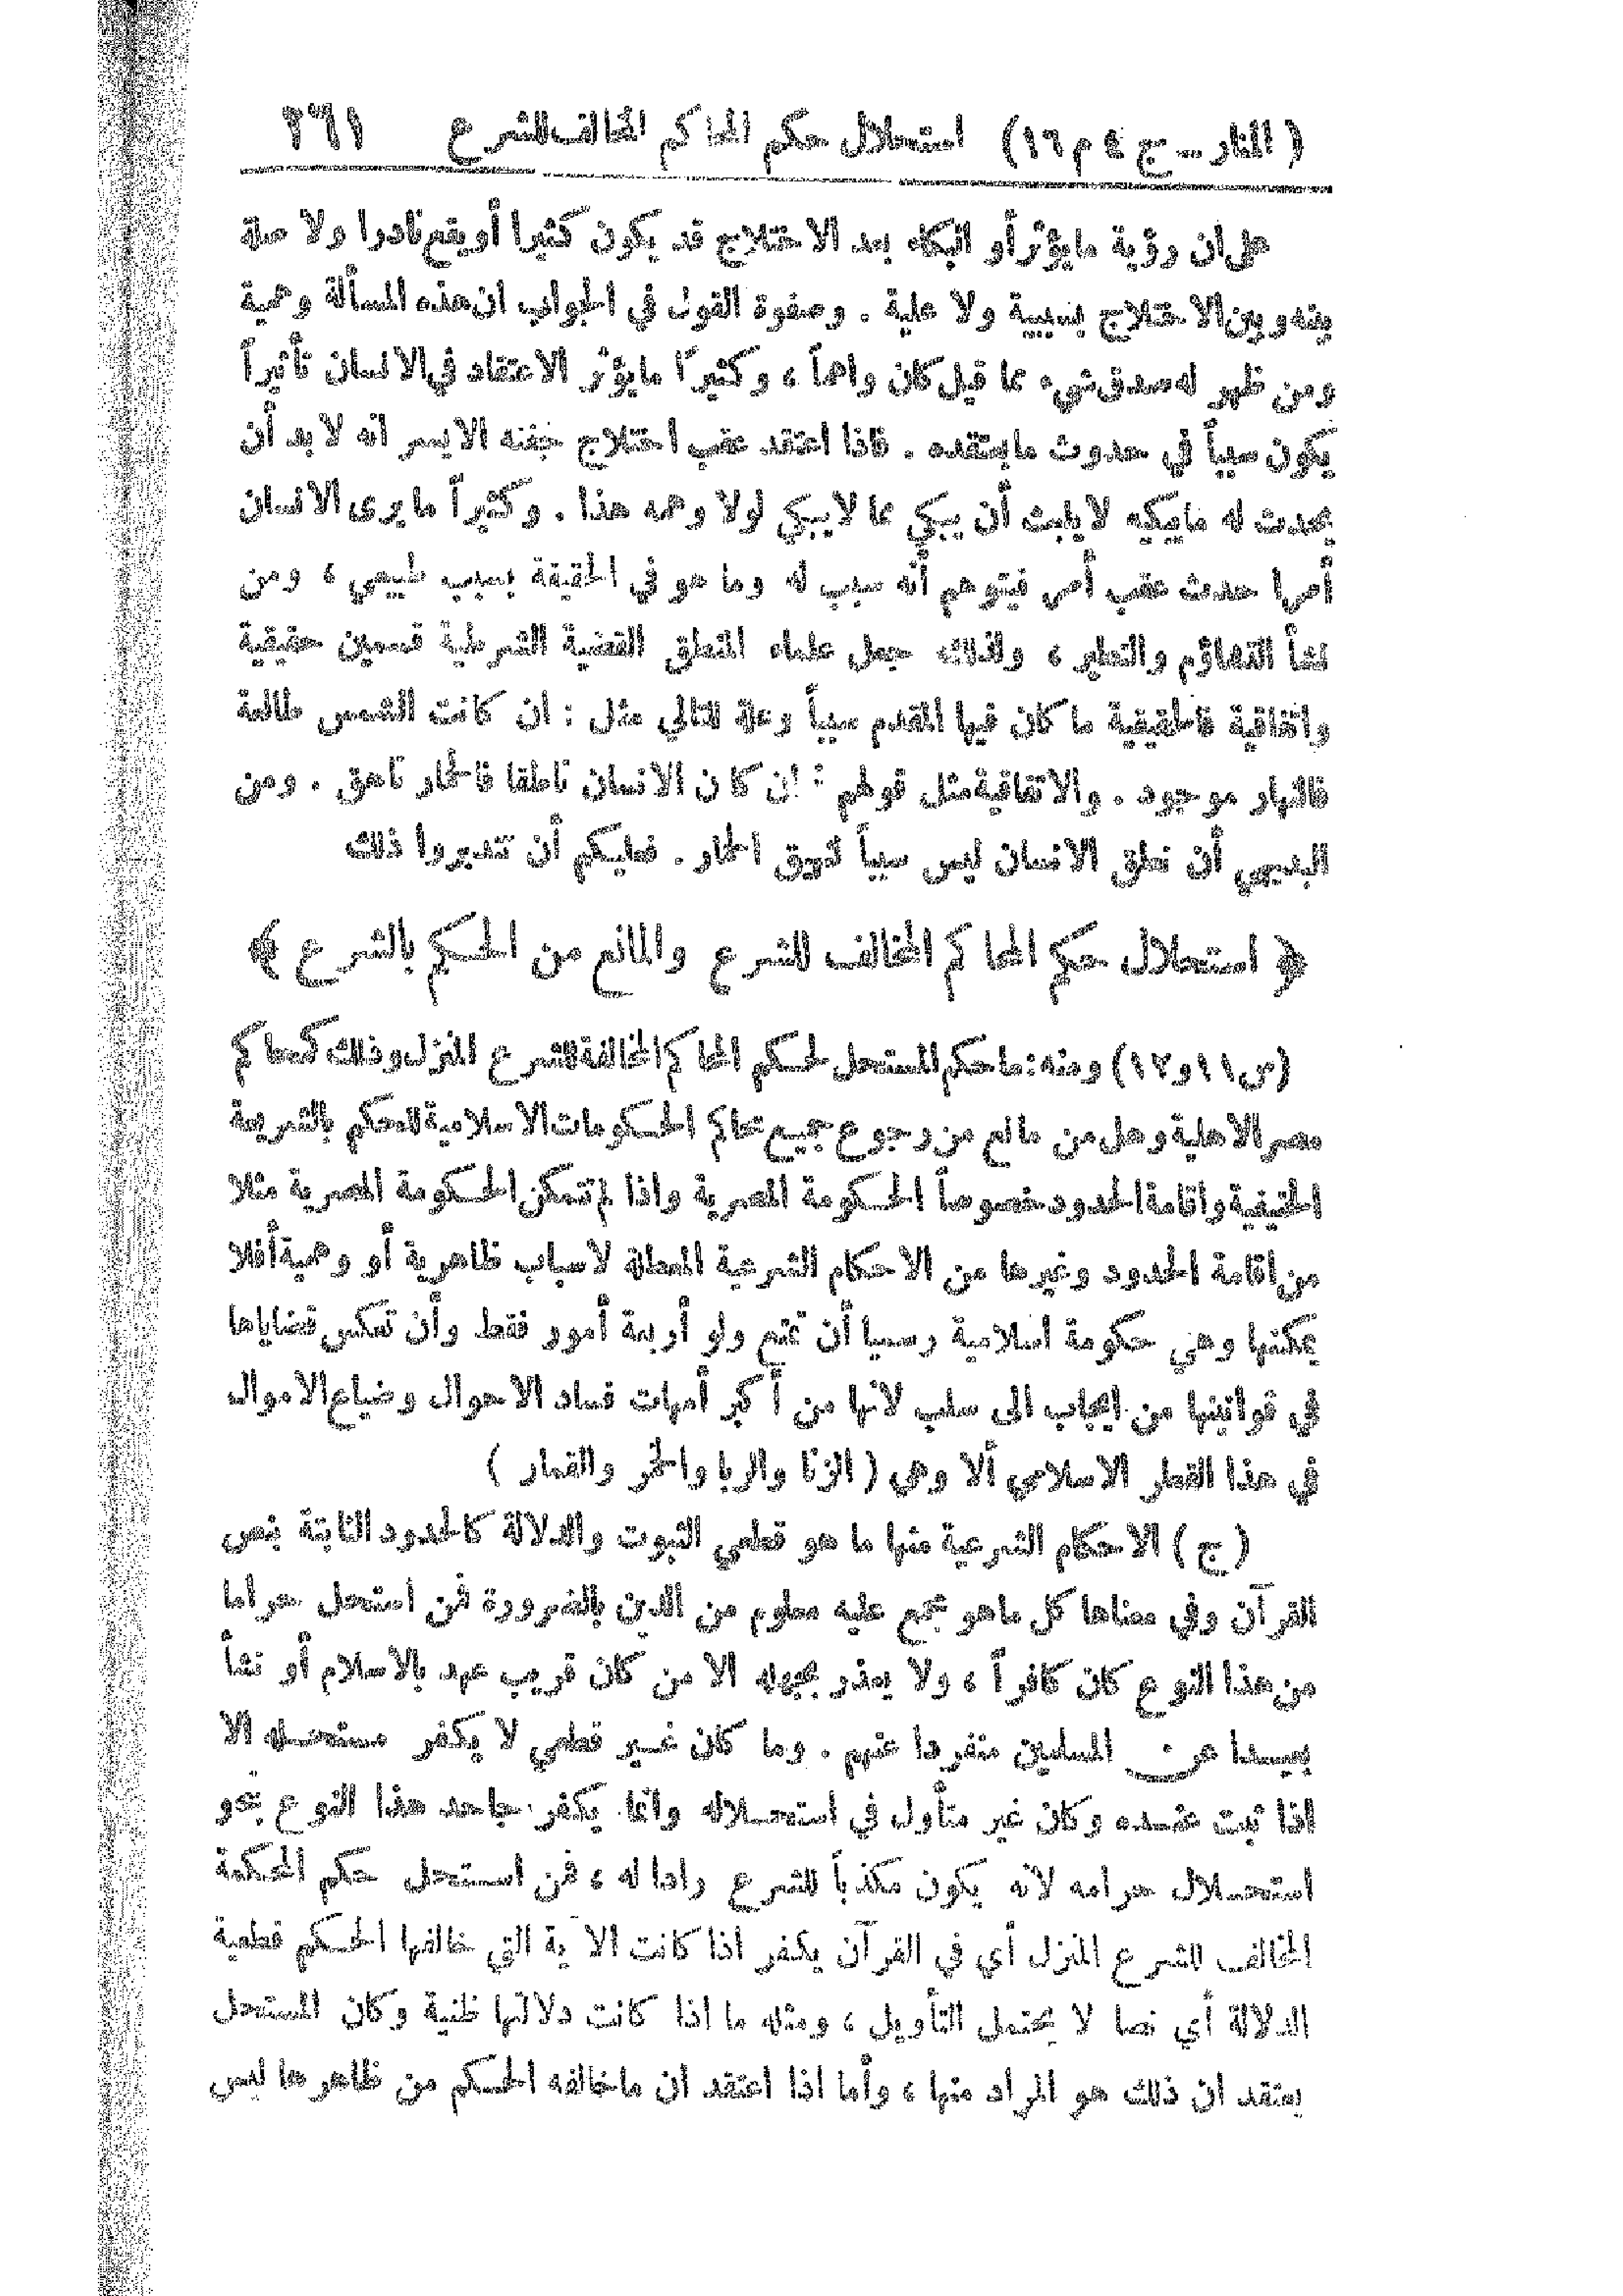 ( المنار ــ ج ٤ م ١٦ ) استحلال حكم المحاكم المخالف للشرع ٢٦١
على ان رؤية مايؤثر أو ابكاه بعد الاختلاج قد يكون كثيرا أو يقع نادرا ولا صلة
بينه وبين الاختلاج بسببية ولا علية . وصفوة القول في الجواب ان هذه المسألة وهمية
ومن ظهر له صدق شيء مما قيل كان واهماً ، وكثيراً مايؤثر الاعتقاد في الانسان تأثيراً
يكون سبباً في حدوث مايعتقده . فاذا اعتقد عقب اختلاج جفنه الايسر انه لا بد أن
يحدث له مايبكيه لا يلبث أن يبكي مما لا يبكي لولا وهمه هذا . وكثيراً ما يرى الانسان
أمرا حدث عقب أمر فيتوهم أنه سبب له وما هو في الحقيقة بسبب طبيعي ، ومن
نشأ التشاؤم والتطير ، ولذلك جعل علماء المنطق القضية الشرطية قسمين حقيقية
واتفاقية فالحقيقية ما كان فيها المقدم سبباً وعلة للتالي مثل : ان كانت الشمس طالعة
فالنهار موجود . والاتفاقية مثل قولهم : ان كان الانسان ناطقا فالحمار ناهق . ومن
البديهي أن نطق الانسان ليس سبباً لنهيق الحمار . فعليكم أن تتدبروا ذلك
﴿ استحلال حكم المحاكم المخالف للشرع والمانع من الحكم بالشرع ﴾
(س ١١ و ١٢) ومنه : ما حكم المستحل لحكم المحاكم المخالفة للشرع المنزل وذلك كمحاكم
مصر الاهلية وهل من مانع من رجوع جميع محاكم الحكومات الاسلامية للحكم بالشريعة
الحنيفية واقامة الحدود خصوصاً الحكومة المصرية واذا لم تتمكن الحكومة المصرية مثلا
من اقامة الحدود وغيرها من الاحكام الشرعية المعطلة لاسباب ظاهرية أو وهمية أفلا
يمكنها وهي حكومة اسلامية رسميا أن تمنع ولو أربعة أمور فقط وأن تعكس قضاياها
في قوانينها من إيجاب الى سلب لانها من أكبر أمهات فساد الاحوال وضياع الاموال
في هذا القطر الاسلامي ألا وهي ( الزنا والربا والخمر والقمار )
( ج ) الاحكام الشرعية منها ما هو قطعي الثبوت والدلالة كالحدود الثابتة بنص
القرآن وفي معناها كل ماهو مجمع عليه معلوم من الدين بالضرورة فمن استحل حراما
من هذا النوع كان كافراً ، ولا يعذر بجهله الا من كان قريب عهد بالاسلام أو نشأ
بعيدا عن المسلمين منفردا عنهم . وما كان غير قطعي لا يكفر مستحله الا
اذا ثبت عنده وكان غير متأول في استحلاله وانما يكفر جاحد هذا النوع بنحو
استحلال حرامه لانه يكون مكذباً للشرع رادا له ، فمن استحل حكم المحكمة
المخالف للشرع المنزل أي في القرآن يكفر اذا كانت الآية التي خالفها الحكم قطعية
الدلالة أي نصا لا يحتمل التأويل ، ومثله ما اذا كانت دلالتها ظنية وكان المستحل
يعتقد ان ذلك هو المراد منها ، وأما اذا اعتقد ان ماخالفه الحكم من ظاهرها ليس